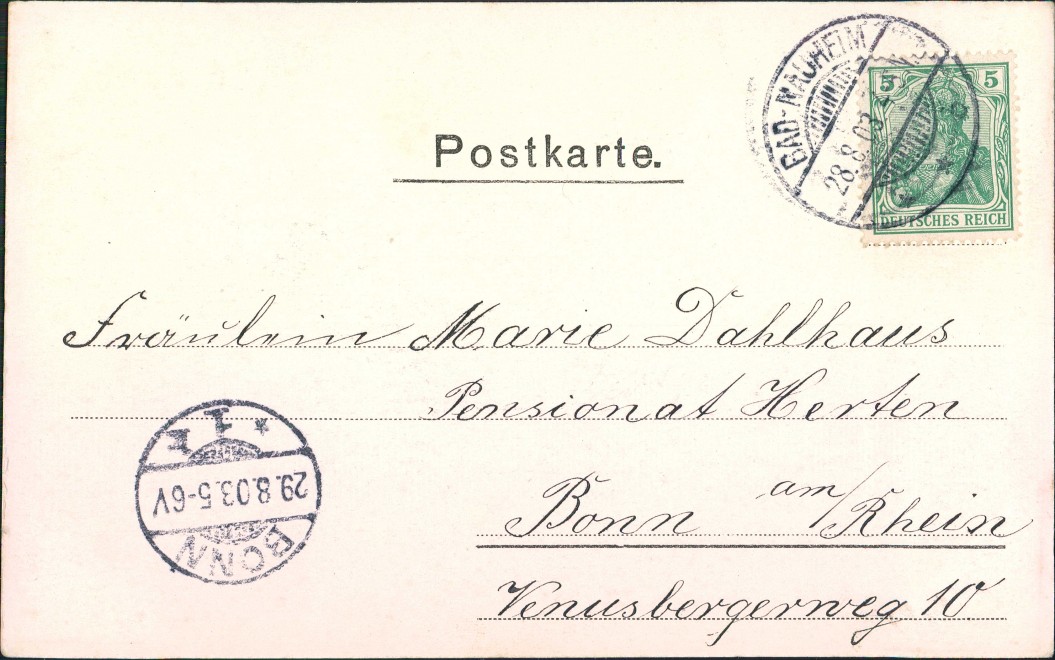 BAD-NAUHEIM
28.8.03
5 5
DEUTSCHES REICH
Postkarte.
Fräulein Marie Dahlhaus
Pensionat Herten
Bonn am/Rhein
Venusbergerweg 10
BONN
29.8.03.5-6V